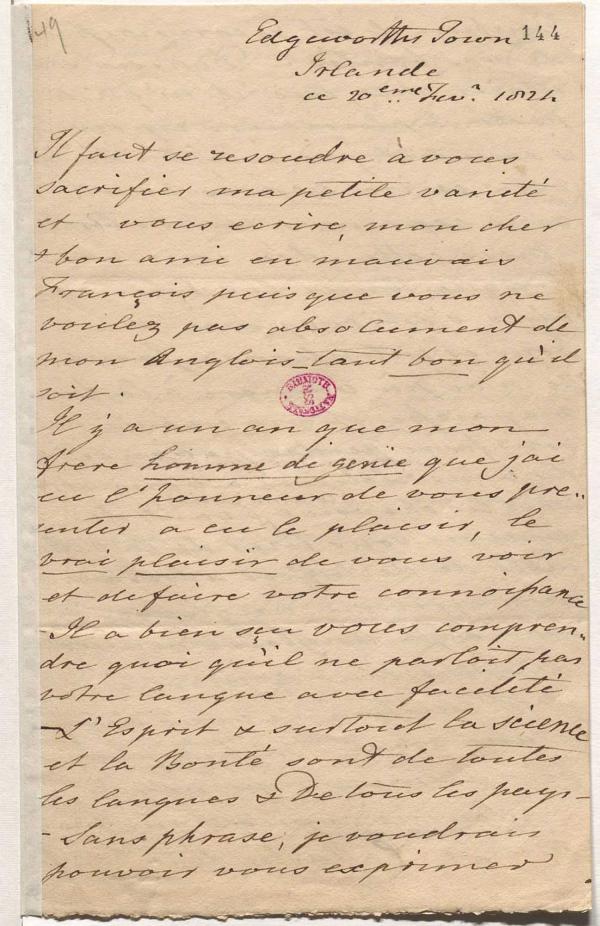 149
Edgeworths Town 144
Irlande
ce 20eme Fevr. 1824
Il faut se resoudre à vous
sacrifier ma petite vanité
et vous ecrire, mon cher
& bon ami en mauvais
François puisque vous ne
voulez pas absolument de
mon Anglois – tant bon qu'il
soit.
Il y a un an que mon
frere homme de genie que j'ai
eu l'honneur de vous pre-
senter a eu le plaisir, le
vrai plaisir de vous voir
et de faire votre connoissance
– Il a bien sçu vous compren-
dre quoi qu'il ne parloit pas
votre langue avec facilité
– L'Esprit & surtout la science
et la Bonté sont de toutes
les langues & De tous les pays –
– Sans phrase, je voudrais
pouvoir vous exprimer